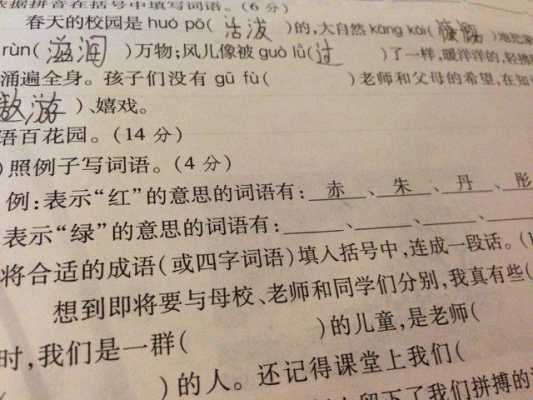 依据拼音在括号中填写词语。(6分)
春天的校园是huó pō(活泼)的,大自然kāng kǎi(慷慨)地
rùn(滋润)万物;风儿像被guò lǜ(过)了一样,暖洋洋的,轻拂
涌遍全身。孩子们没有gū fù( )老师和父母的希望,在知
遨游)、嬉戏。
语百花园。(14分)
)照例子写词语。(4分)
例:表示“红”的意思的词语有:赤、朱、丹、彤
表示“绿”的意思的词语有:____、____、____、____
将合适的成语(或四字词语)填入括号中,连成一段话。(1
想到即将要与母校、老师和同学们分别,我真有些(
时,我们是一群( )的儿童,是老师(
)的人。还记得课堂上我们(
留下了我们拼搏的